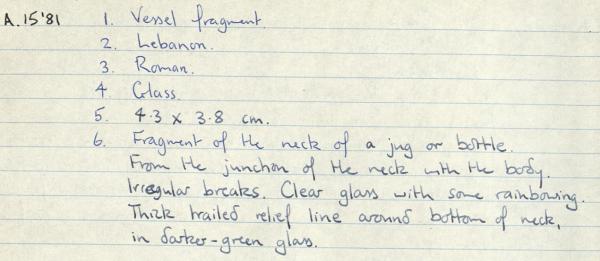 A.15'81 1. Vessel fragment.
2. Lebanon.
3. Roman.
4 Glass.
5. 4.3 x 3.8 cm.
6. Fragment of the neck of a jug or bottle.
From the junction of the neck with the body.
Irregular breaks. Clear glass with some rainbowing.
Thick trailed relief line around bottom of neck,
in darker-green glass.